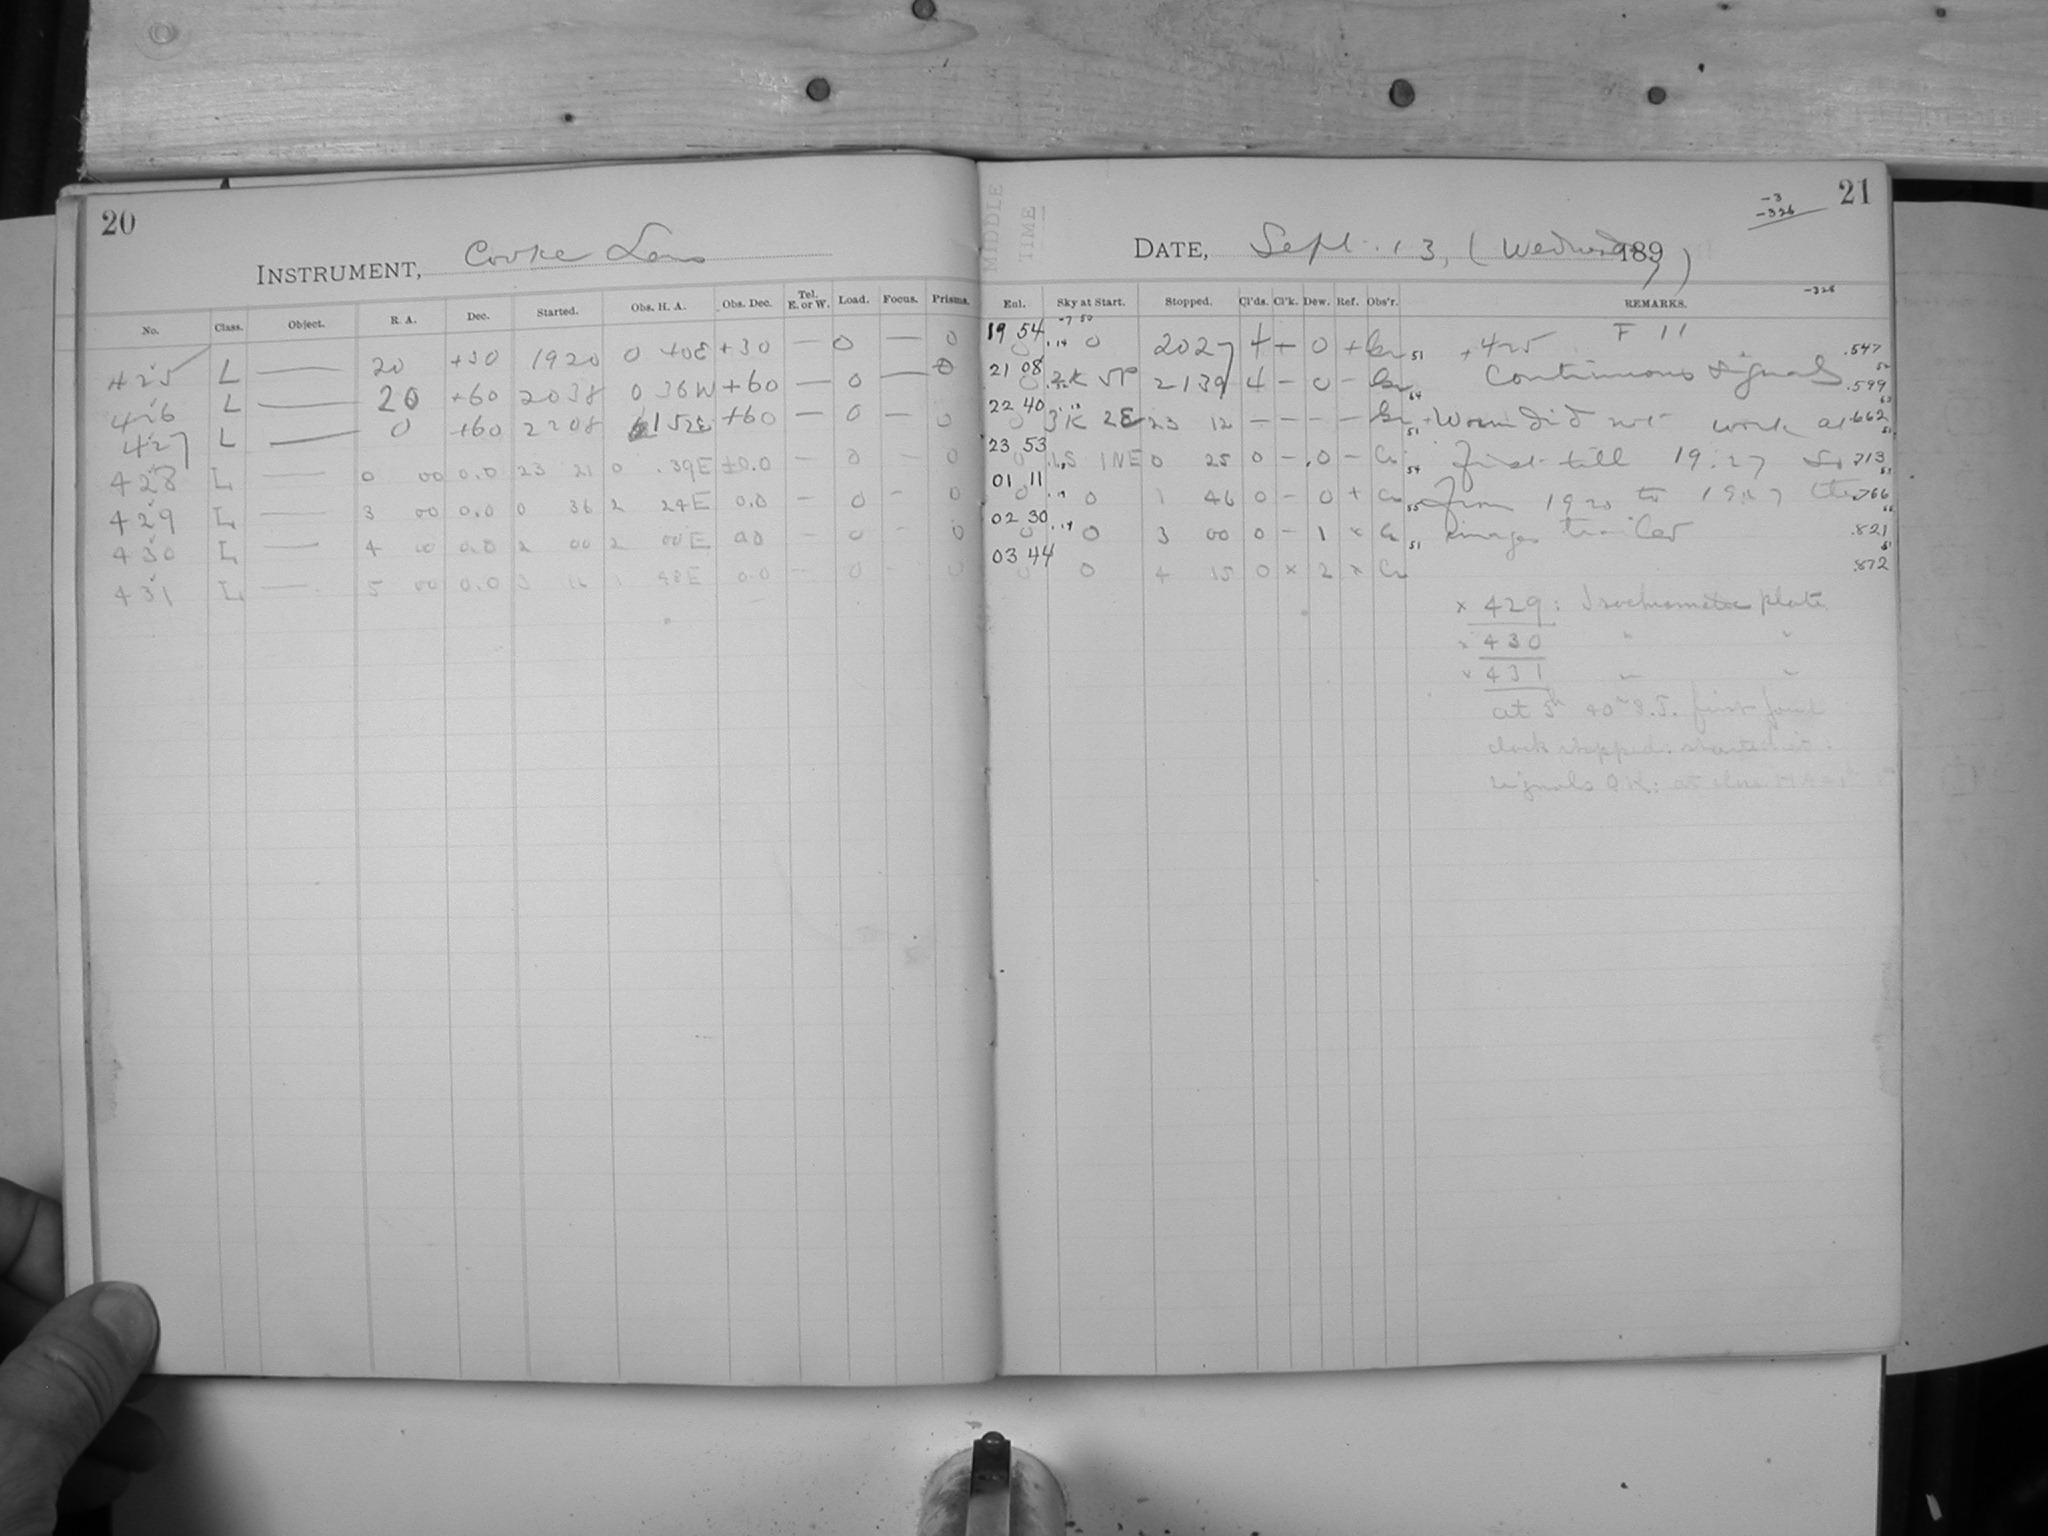 20
INSTRUMENT, Cooke Lens
No. Class. Object. R. A. Dec. Started. Obs. H. A. Obs. Dec. Tel. E. or W. Load. Focus. Prisms.
425 L — 20 +30 1920 0 40E +30 — 0 — 0
426 L — 20 +60 2038 0 36W +60 — 0 — 0
427 L — 0 +60 2208 152E +60 — 0 — 0
428 L — 0 00 0.0 23 21 0 .39E ±0.0 — 0 — 0
429 L — 3 00 0.0 0 36 2 24E 0.0 — 0 — 0
430 L — 4 00 0.0 2 00 2 00E 0.0 — 0 - 0
431 L — 5 00 0.0 3 16 1 48E 0.0 — 0 - 0
MIDDLE
TIME
-3
-326
21
DATE, Sept. 13, (Wednesday) 189
-328
Enl. Sky at Start. Stopped. Cl'ds. Cl'k. Dew. Ref. Obs'r. REMARKS.
19 54 0 2027 4 + 0 + 51 +425 F 11 .547
21 08 2139 4 - 0 - 64 Continuous signals .599
22 40 3K 2E 23 12 - - - - 51 + Worm did not work at .662
23 53 1S 1NE 0 25 0 - .0 - 54 first till 19.27 So .713
01 11 0 1 46 0 - 0 + 55 from 1920 to 1927 the .766
02 30 0 3 00 0 - 1 × 51 images trailed .821
03 44 0 4 15 0 × 2 × .872
× 429: Isochromatic plate
× 430 " "
× 431 " "
at 5h 40m S.T. first found
clock stopped: started it:
signals OK: at close